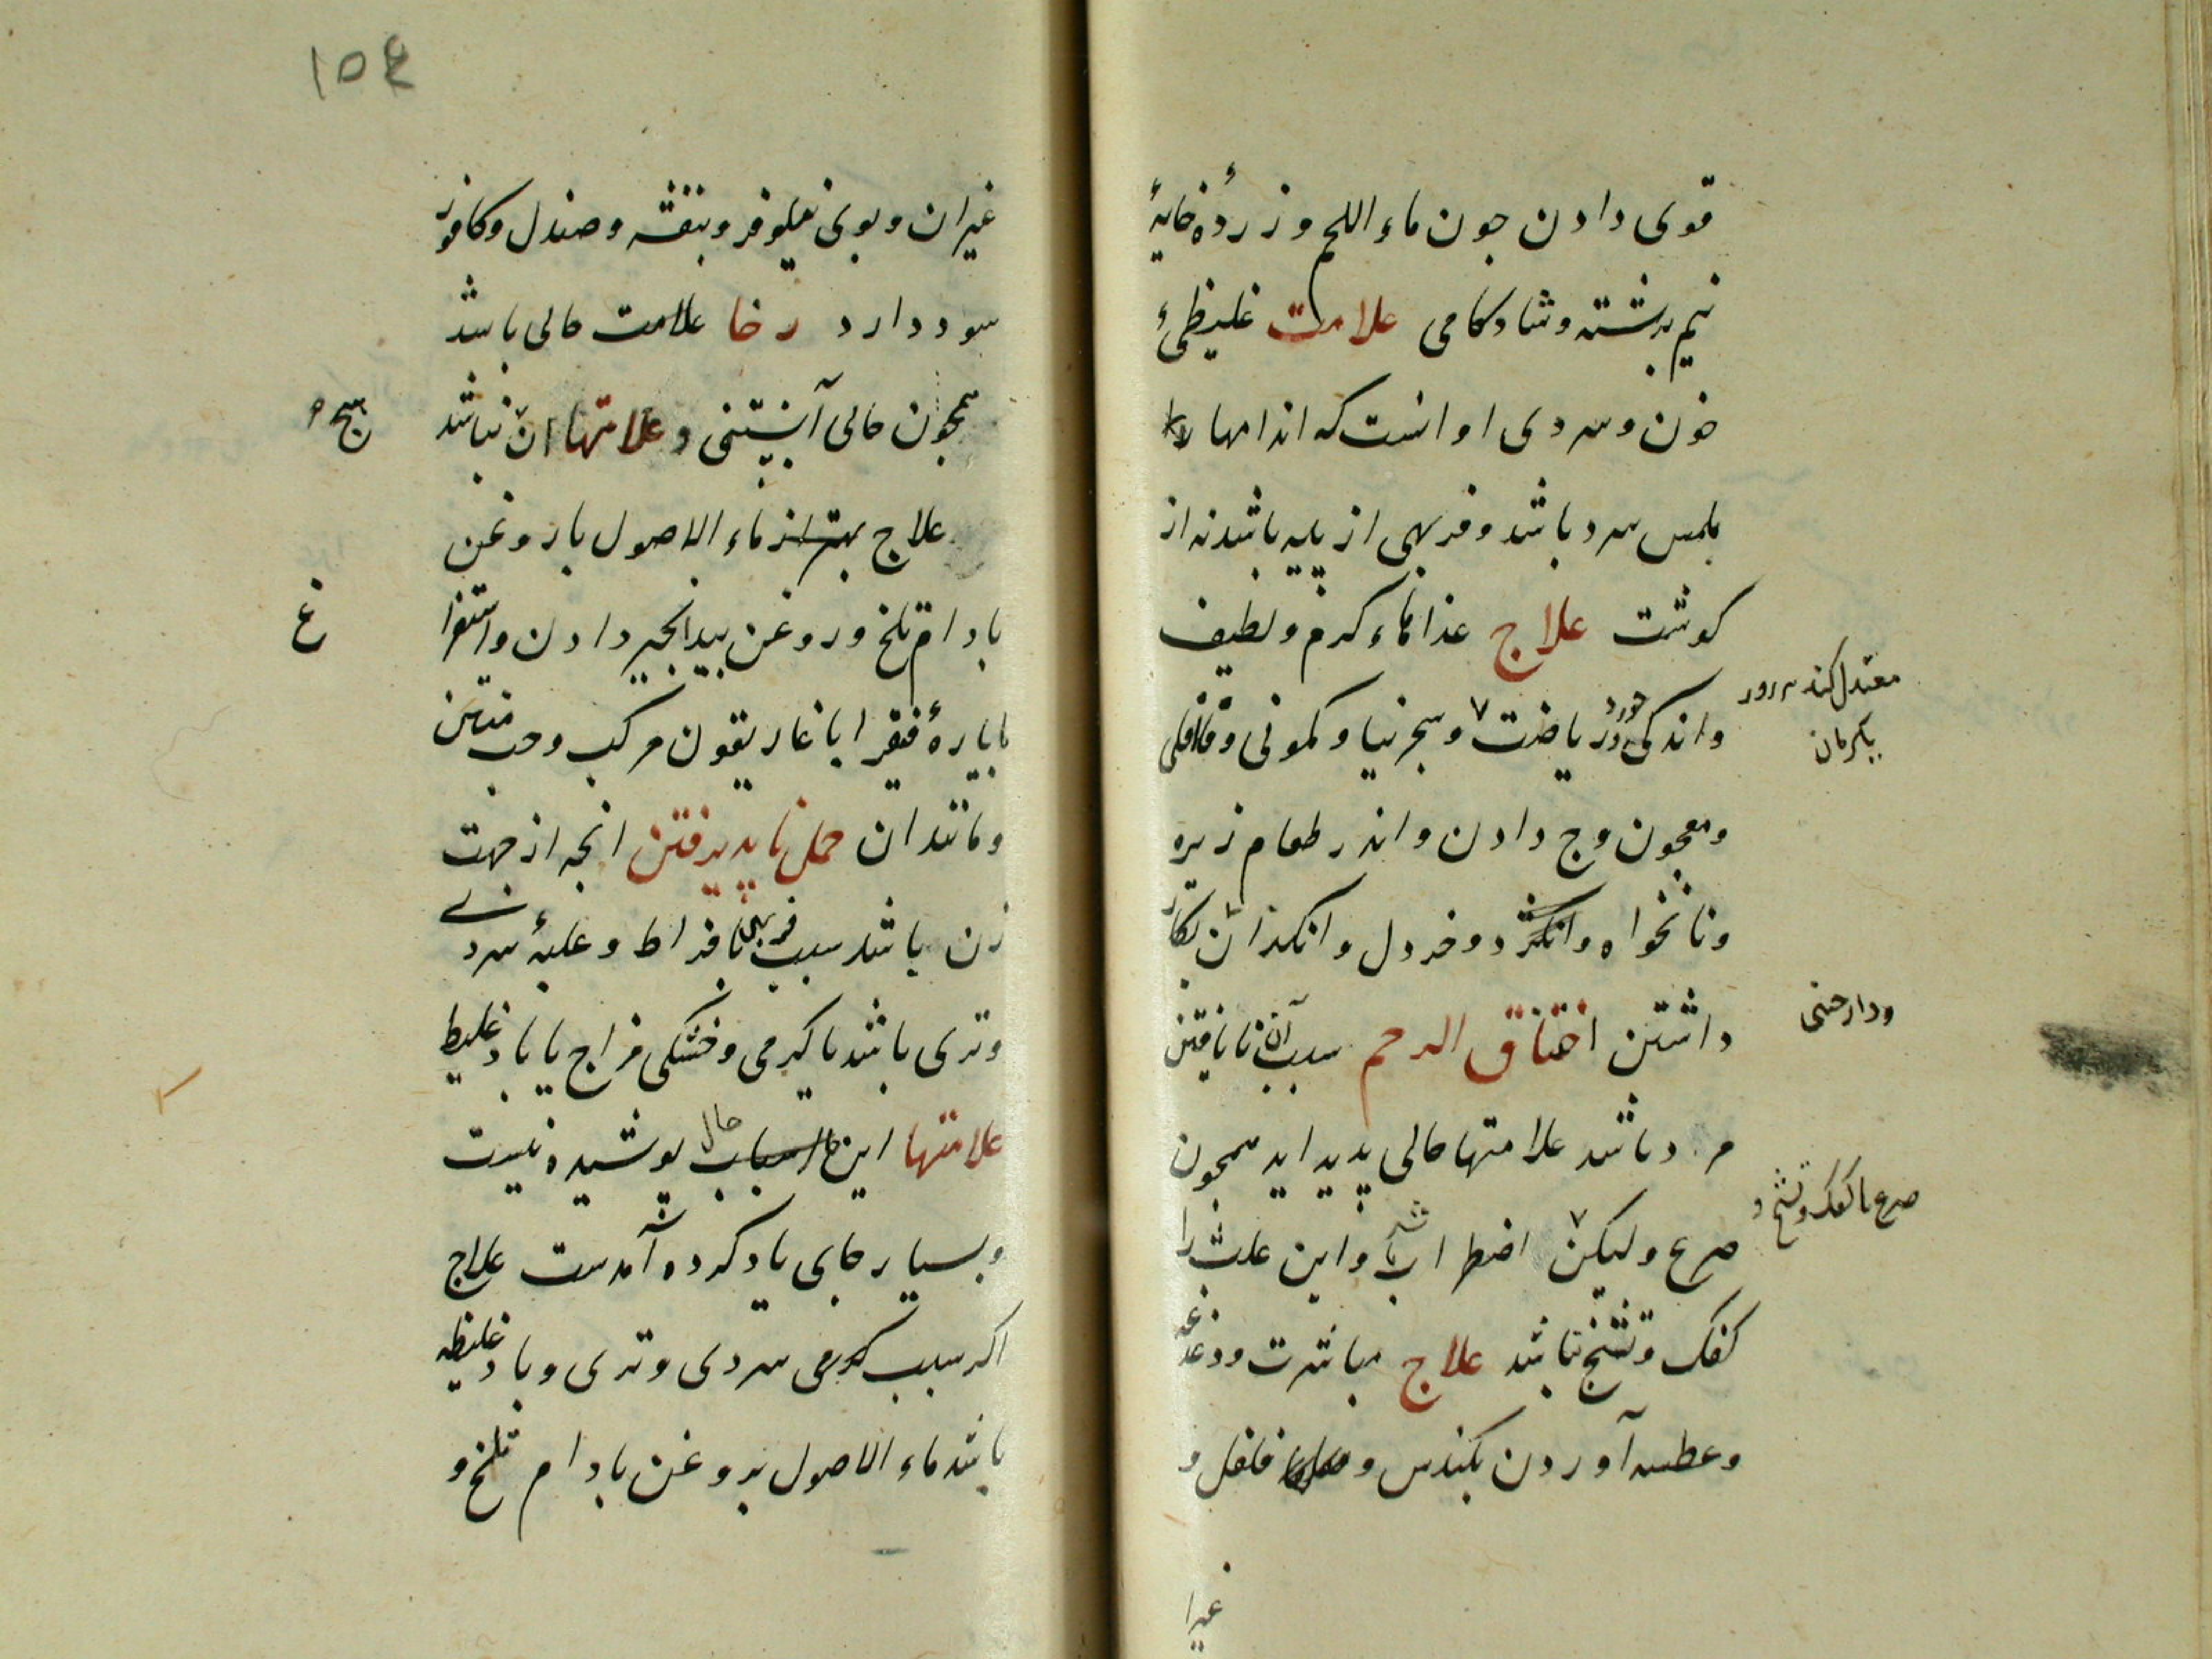 قوی دادن جون ماء اللحم و زردهٔ خایهٔ
نیم برشته و شادکامی علامت غلیظیٔ
خون و سردی او انست که اندامها
بلمس سرد باشد و فربهی از پیه باشد نه از
کوشت علاج غذاهاء کرم و لطیف
واندکی خورد ریاضت و سجرنیا و کمونی و فلافلی
معتدل کند
ومعجون وج دادن و اندر طعام زیره
ونانخواه و انکژد و خردل و انکدان بکار
ودارجنی
داشتن اختناق الرحم سبب آن نایافتن
مرد باشد علامتها حالی پدید اید همجون
صرع با کفک و تشنج و
صرع ولیکن اضطراب واین علت را
کفک و تشنج نباشد علاج مباشرت و دغدغه
وعطسه آوردن بکندس و فلفل و
غیرا
108
غیران و بوی نیلوفر و بنفشه و صندل و کافور
سود دارد رخا علامت حالی باشد
همجون حالی آبستنی و علامتها ان نباشد
هیج
علاج بهتر از ماء الاصول با روغن
بادام تلخ و روغن بیدانجیر دادن و استفرا
غ
بایارهٔ فیقرا با غاریقون مرکب و حب منتن
ومانند ان حمل ناپدیرفتن انجه از جهت
زن باشد سبب فربهی بافراط و غلبهٔ سردی
وتری باشد یا کرمی و خشکی مزاج یا باد غلیظ
علامتها این اسباب حال پوشیده نیست
وبسیار جای یاد کرده آمدست علاج
اکر سبب کرمی سردی و تری و باد غلیظ
باشد ماء الاصول بروغن بادام تلخ و